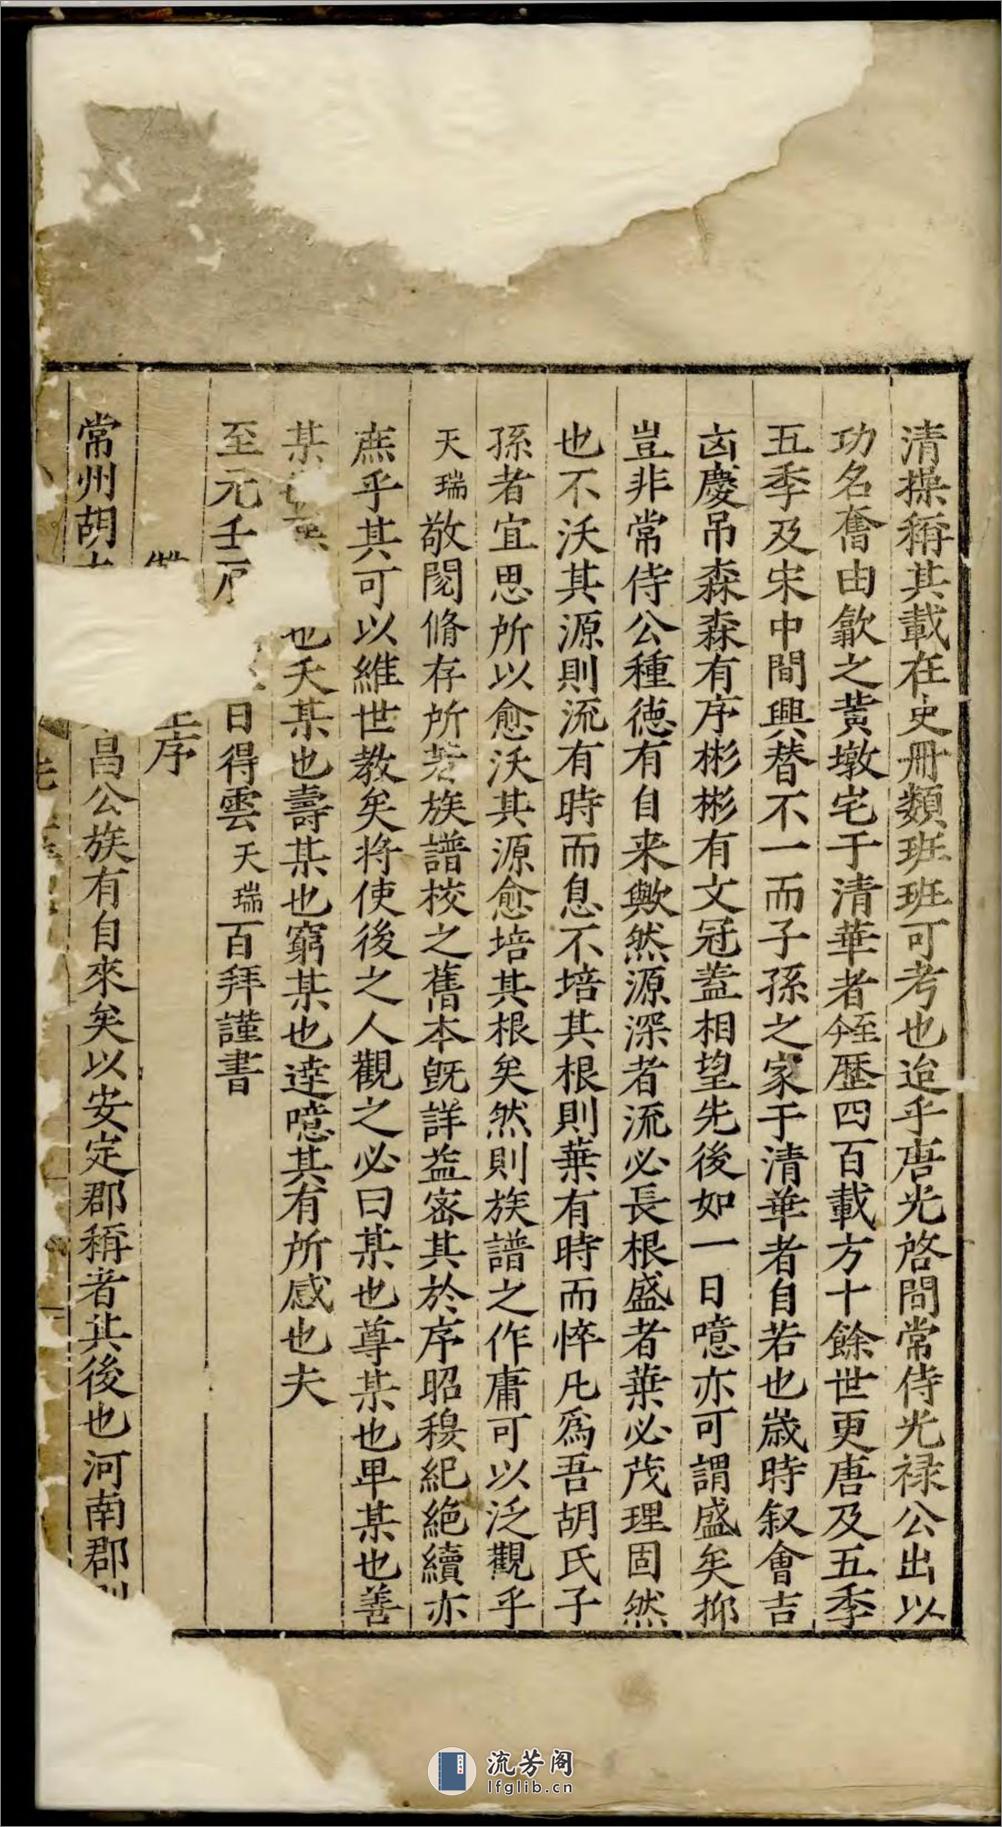 清操稱其載在史冊類班班可考也迨乎唐光啓間常侍光祿公出以
功名奮由歙之黄墩宅于清華者今至歷四百載方十餘世更唐及五季
五季及宋中間興替不一而子孫之家于清華者自若也歲時叙會吉
凶慶吊森森有序彬彬有文冠蓋相望先後如一日噫亦可謂盛矣抑
豈非常侍公種徳有自来歟然源深者流必長根盛者葉必茂理固然
也不沃其源則流有時而息不培其根則葉有時而悴凡爲吾胡氏子
孫者宜思所以愈沃其源愈培其根矣然則族譜之作庸可以泛觀乎
天瑞敬閱脩存所著族譜校之舊本旣詳益密其於序昭穆紀絶續亦
庶乎其可以維世教矣将使後之人觀之必曰某也尊某也卑某也善
某也夭某也壽某也窮某也達噫其有所感也夫
至元壬日得雲天瑞百拜謹書
序
常州胡昌公族有自來矣以安定郡稱者其後也河南郡
流芳阁
lfglib.cn